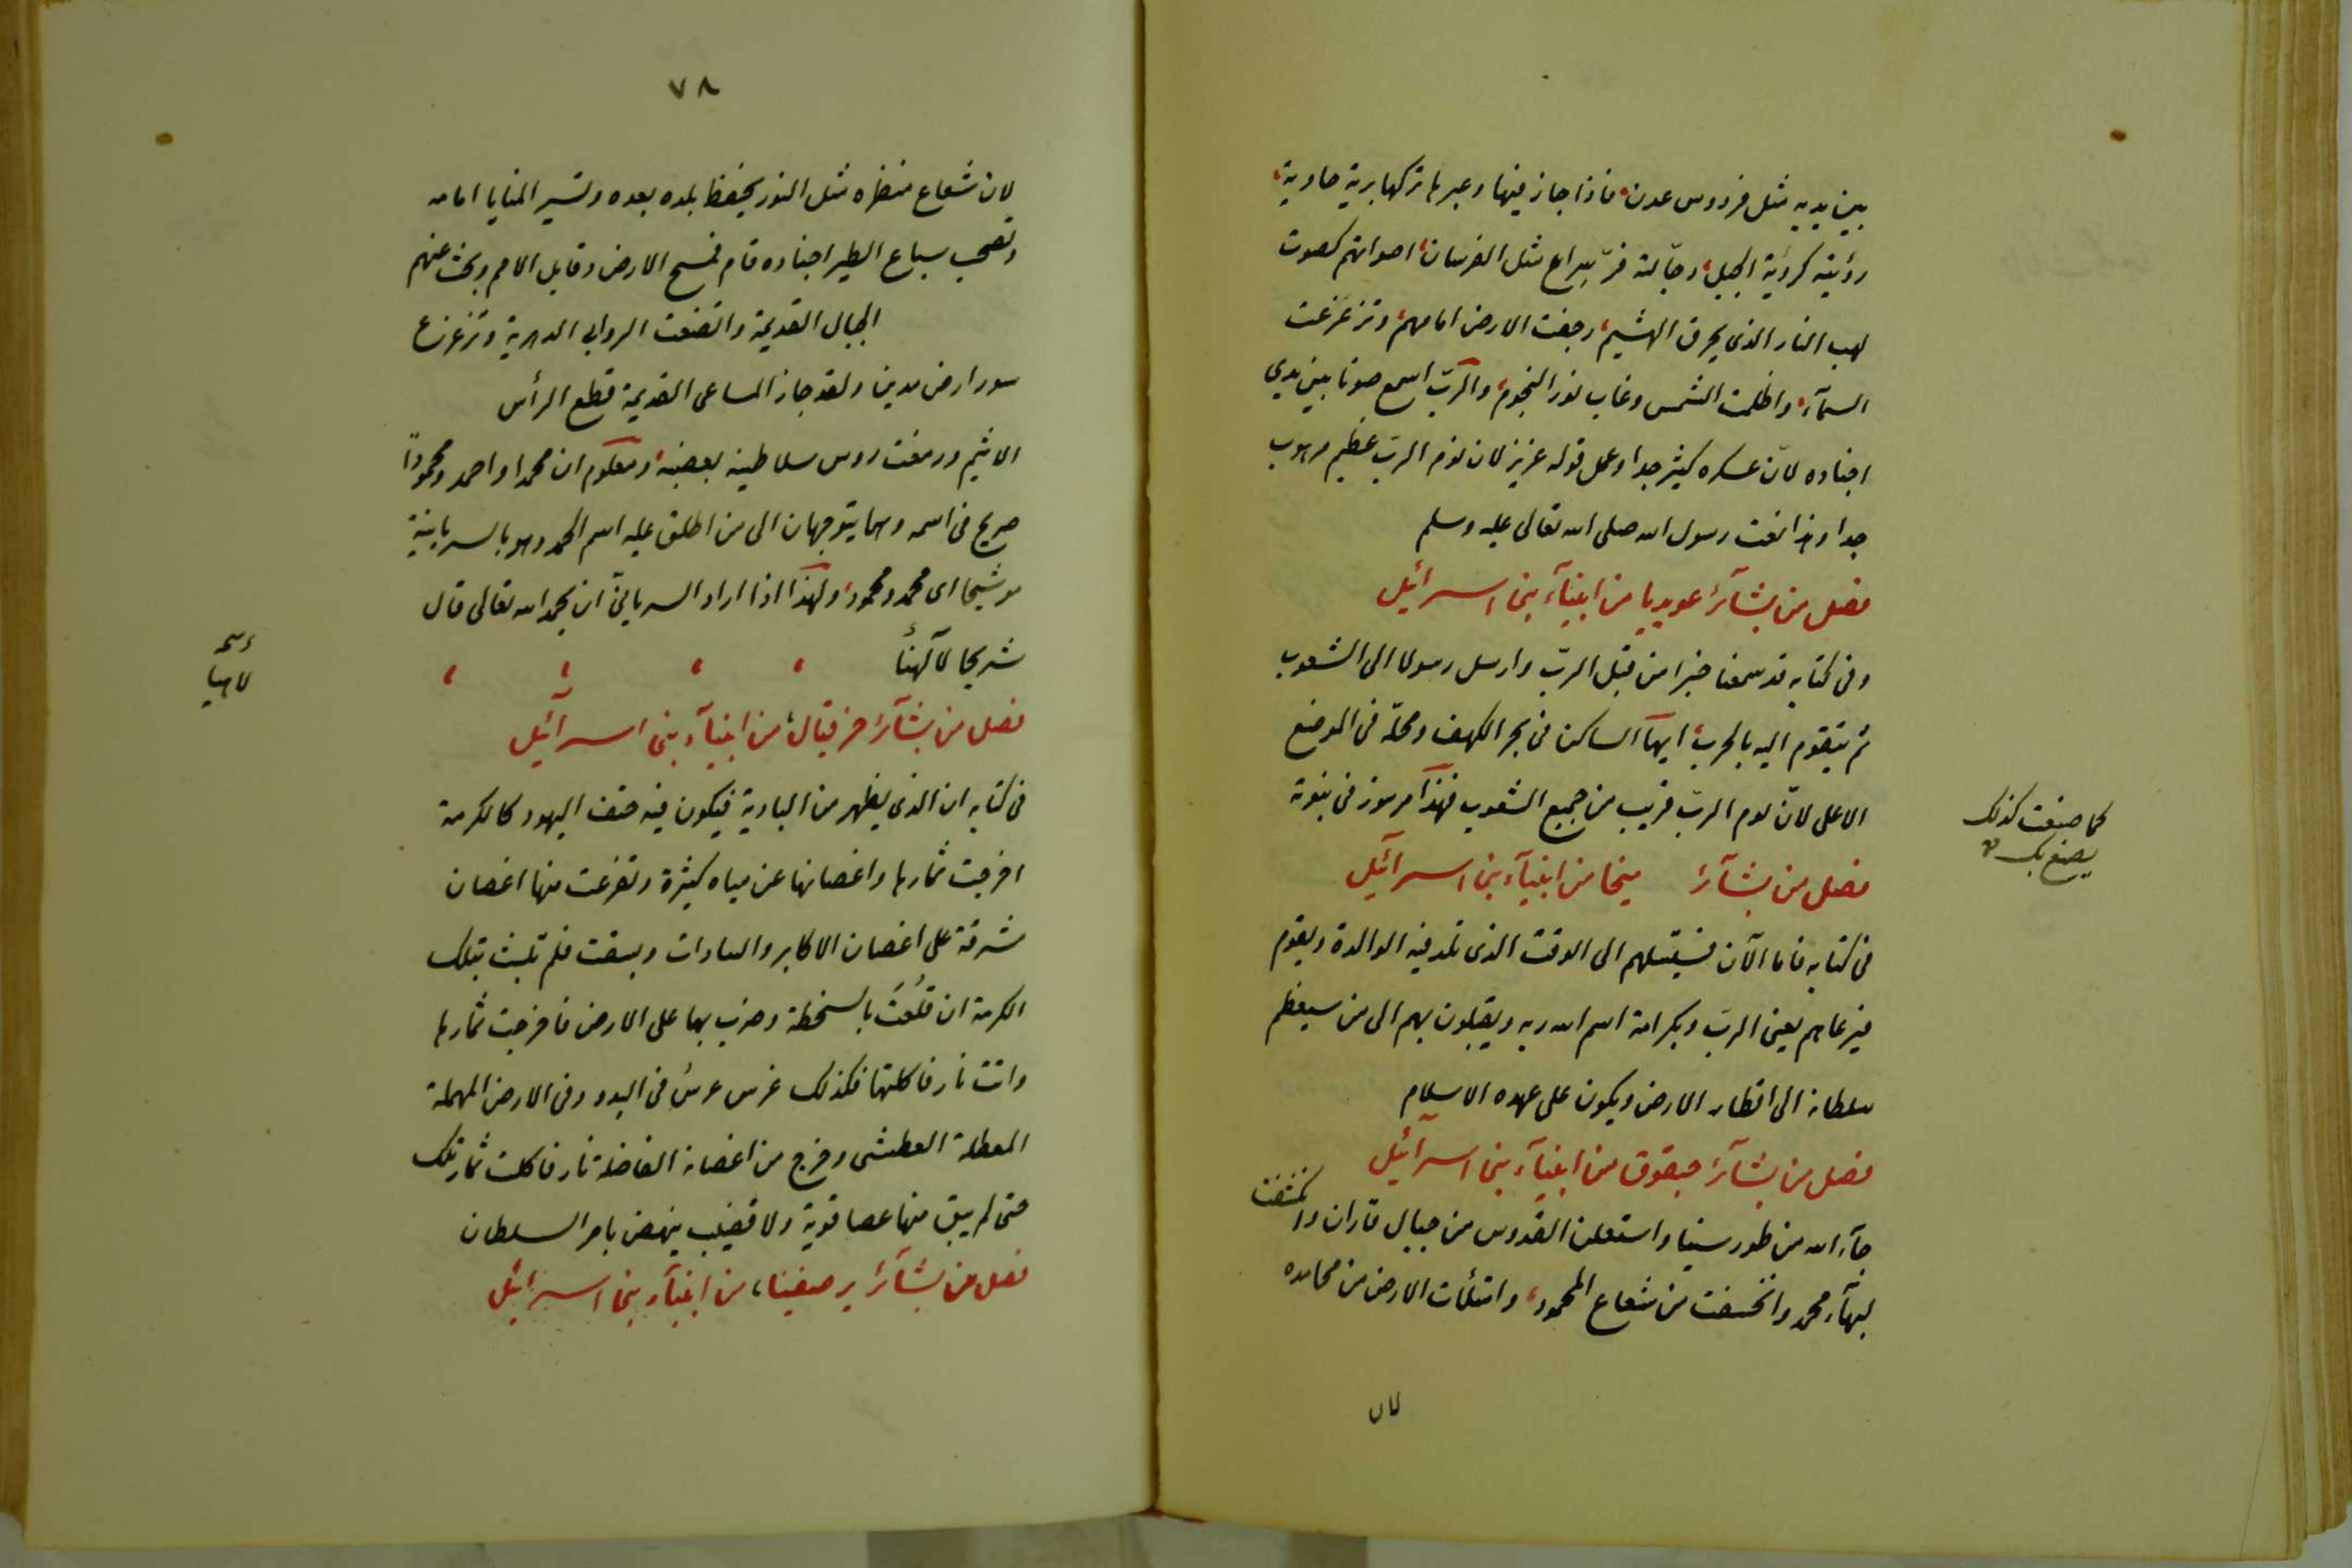 بين يديه مثل فردوس عدن، فاذا جاز فيها وعبرها تركها برية خاوية،
رؤيته كرؤية الخيل، ورجالته سراع مثل الفرسان، اصواتهم كصوت
لهب النار الذى يحرق الهشيم، رجفت الارض امامهم، وتزعزعت
السمآء، واظلمت الشمس وغاب نور النجوم، والرّبّ اسمع صوتا بين يدى
اجناده لانّ عسكره كثير جدا وعمل قوله عزيز لان يوم الربّ عظيم مرهوب
جدا وهذا نعت رسول الله صلى الله تعالى عليه وسلم
فصل من بشآئر عوبديا من انبيآء بنى اسرائيل
وفى كتابه قد سمعنا خبرا من قبل الربّ وارسل رسولا الى الشعوب
ثم يتقوم اليه بالحرب، ايها الساكن فى بحر الكهف ومحله فى الموضع
الاعلى لانّ يوم الربّ قريب من جميع الشعوب فهذا مرموز فى نبوته
كما صنعت كذلك
يصنع بك
فصل من بشآئر ميخا من انبيآء بنى اسرآئيل
فى كتابه فاما الآن فسيتسلهم الى الوقت الذى تلد فيه الوالدة ويقوم
فيرعاهم بعين الربّ وبكرامة اسم الله ربه ويقبلون بهم الى من سيعظم
سلطانه الى اقطار الارض ويكون على عهده الاسلام
فصل من بشآئر حبقوق من انبيآء بنى اسرآئيل
جآء الله من طور سينا واستعلن القدوس من جبال فاران وانكشفت
لبهآء محمد وانخسفت من شعاع المحمود، وامتلأت الارض من محامده
لان
٧٨
لان شعاع منظره مثل النور يحفظ بلده بعده وتسير المنايا امامه
وتصحب سباع الطير اجناده قام فمسح الارض وقابل الامم وبحث عنهم
الجبال القديمة واتضعت الروابى الدهرية وتزعزع
سور ارض مدين ولقد جاز المساعى القديمة قطع الرأس
الاثيم ودمغت روس سلاطينه بعصبه، ومعلوم ان محمدا واحمد ومحمودًا
صريح فى اسمه وهما يتوجهان الى من اطلق عليه اسم الحمد وهو بالسريانية
موشيحا اى محمد ومحمود، ولهذا اذا اراد السريانىّ ان يحمد الله تعالى قال
شريحا لآلهنا
لاهيا
فصل من بشآئر حزقيال، من انبيآء بنى اسرآئيل
فى كتابه ان الذى يظهر من البادية فيكون فيه حتف اليهود كالكرمة
اخرجت ثمارها واغصانها عن مياه كثيرة وتفرعت منها اغصان
مشرفة على اغصان الاكابر والسادات وبسقت فلم تلبث تلك
الكرمة ان قلعت بالسخطة وضرب بها على الارض فاخرجت ثمارها
واتت نار فاكلتها فكذلك غرس غرسٌ فى البدو وفى الارض المهملة
المعطلة العطشى وخرج من اغصانه الفاضلة نار فاكلت ثمار تلك
حتى لم يبق منها عصا قوية ولا قضيب ينهض بامر السلطان
فصل من بشآئر صفينا، من انبيآء بنى اسرائيل